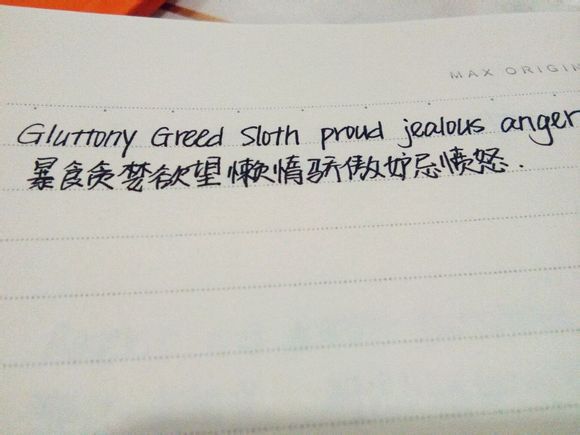 MAX ORIGIN
Gluttony Greed Sloth proud jealous anger
暴食贪婪欲望懒惰骄傲妒忌愤怒.